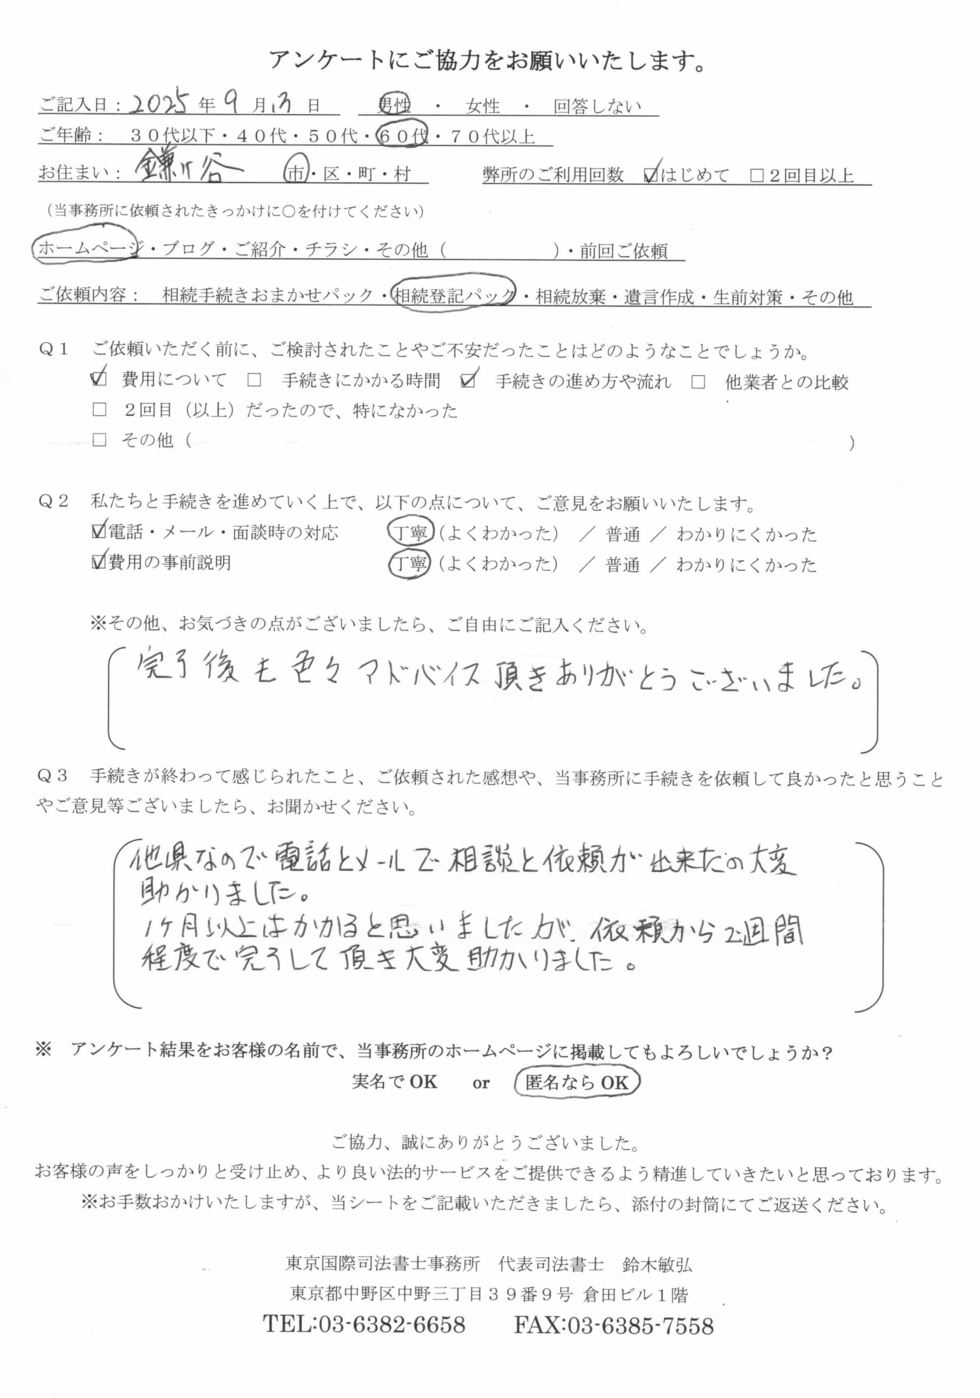 アンケートにご協力をお願いいたします。
ご記入日：2025年9月13日　男性　・　女性　・　回答しない
ご年齢：　３０代以下・４０代・５０代・６０代・７０代以上
お住まい：鎌ケ谷　市・区・町・村　弊所のご利用回数　☑はじめて　□２回目以上
（当事務所に依頼されたきっかけに○を付けてください）
ホームページ・ブログ・ご紹介・チラシ・その他（　　　　　　）・前回ご依頼
ご依頼内容：　相続手続きおまかせパック・相続登記パック・相続放棄・遺言作成・生前対策・その他
Ｑ１　ご依頼いただく前に、ご検討されたことやご不安だったことはどのようなことでしょうか。
☑　費用について　□　手続きにかかる時間　☑　手続きの進め方や流れ　□　他業者との比較
□　２回目（以上）だったので、特になかった
□　その他（　　　　　　　　　　　　　　　　　　　　　　）
Ｑ２　私たちと手続きを進めていく上で、以下の点について、ご意見をお願いいたします。
☑電話・メール・面談時の対応　　丁寧（よくわかった）　／　普通　／　わかりにくかった
☑費用の事前説明　　丁寧（よくわかった）　／　普通　／　わかりにくかった
※その他、お気づきの点がございましたら、ご自由にご記入ください。
完了後も色々アドバイス頂きありがとうございました。
Ｑ３　手続きが終わって感じられたこと、ご依頼された感想や、当事務所に手続きを依頼して良かったと思うこと
やご意見等ございましたら、お聞かせください。
他県なので電話とメールで相談と依頼が出来たの大変
助かりました。
1ヶ月以上はかかると思いましたが、依頼から2週間
程度で完了して頂き大変助かりました。
※　アンケート結果をお客様の名前で、当事務所のホームページに掲載してもよろしいでしょうか？
実名でOK　　or　　匿名ならOK
ご協力、誠にありがとうございました。
お客様の声をしっかりと受け止め、より良い法的サービスをご提供できるよう精進していきたいと思っております。
※お手数おかけいたしますが、当シートをご記載いただきましたら、添付の封筒にてご返送ください。
東京国際司法書士事務所　代表司法書士　鈴木敏弘
東京都中野区中野三丁目３９番９号 倉田ビル１階
TEL:03-6382-6658　　FAX:03-6385-7558